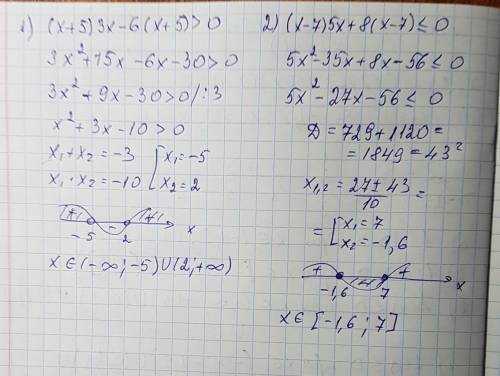 1) (x+5)3x-6(x+5)>0
3x²+15x-6x-30>0
3x²+9x-30>0/:3
x²+3x-10>0
x₁+x₂=-3 [x₁=-5
x₁·x₂=-10 [x₂=2
+ - +
-5 2 x
x∈(-∞;-5)∪(2;+∞)
2) (x-7)5x+8(x-7)≤0
5x²-35x+8x-56≤0
5x²-27x-56≤0
D=729+1120=
=1849=43²
x₁,₂=(27±43)/10=
=[x₁=7
[x₂=-1,6
+ - +
-1,6 7 x
x∈[-1,6;7]